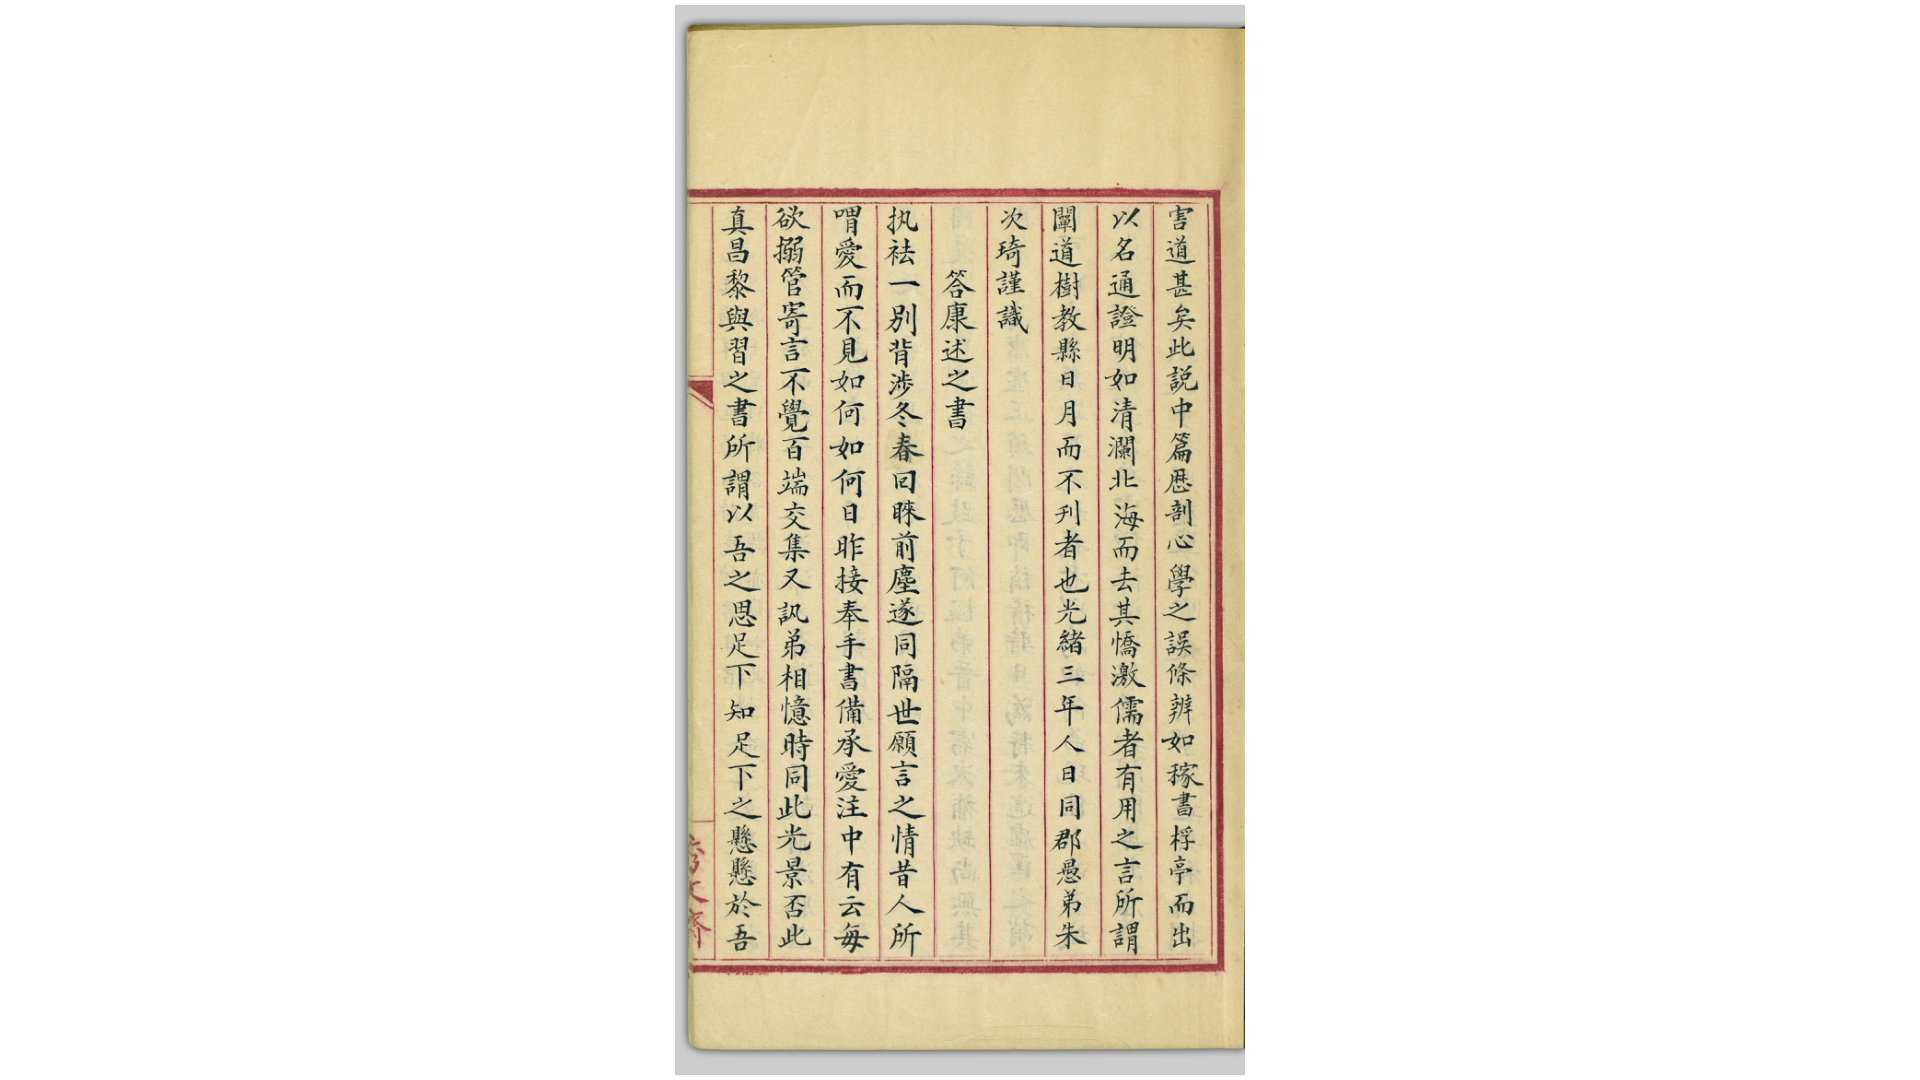 害道甚矣此説中篇厯剖心學之誤條辨如稼書桴亭而出
以名通證明如清瀾北海而去其憍激儒者有用之言所謂
闡道樹教縣日月而不刋者也光緒三年人日同郡愚弟朱
次琦謹識
答康述之書
执袪一别背涉冬春回睐前塵遂同隔世願言之情昔人所
喟愛而不見如何如何日昨接奉手書備承愛注中有云每
欲搦管寄言不覺百端交集又訊弟相憶時同此光景否此
真昌黎與習之書所謂以吾之思足下知足下之懸懸於吾
文齋